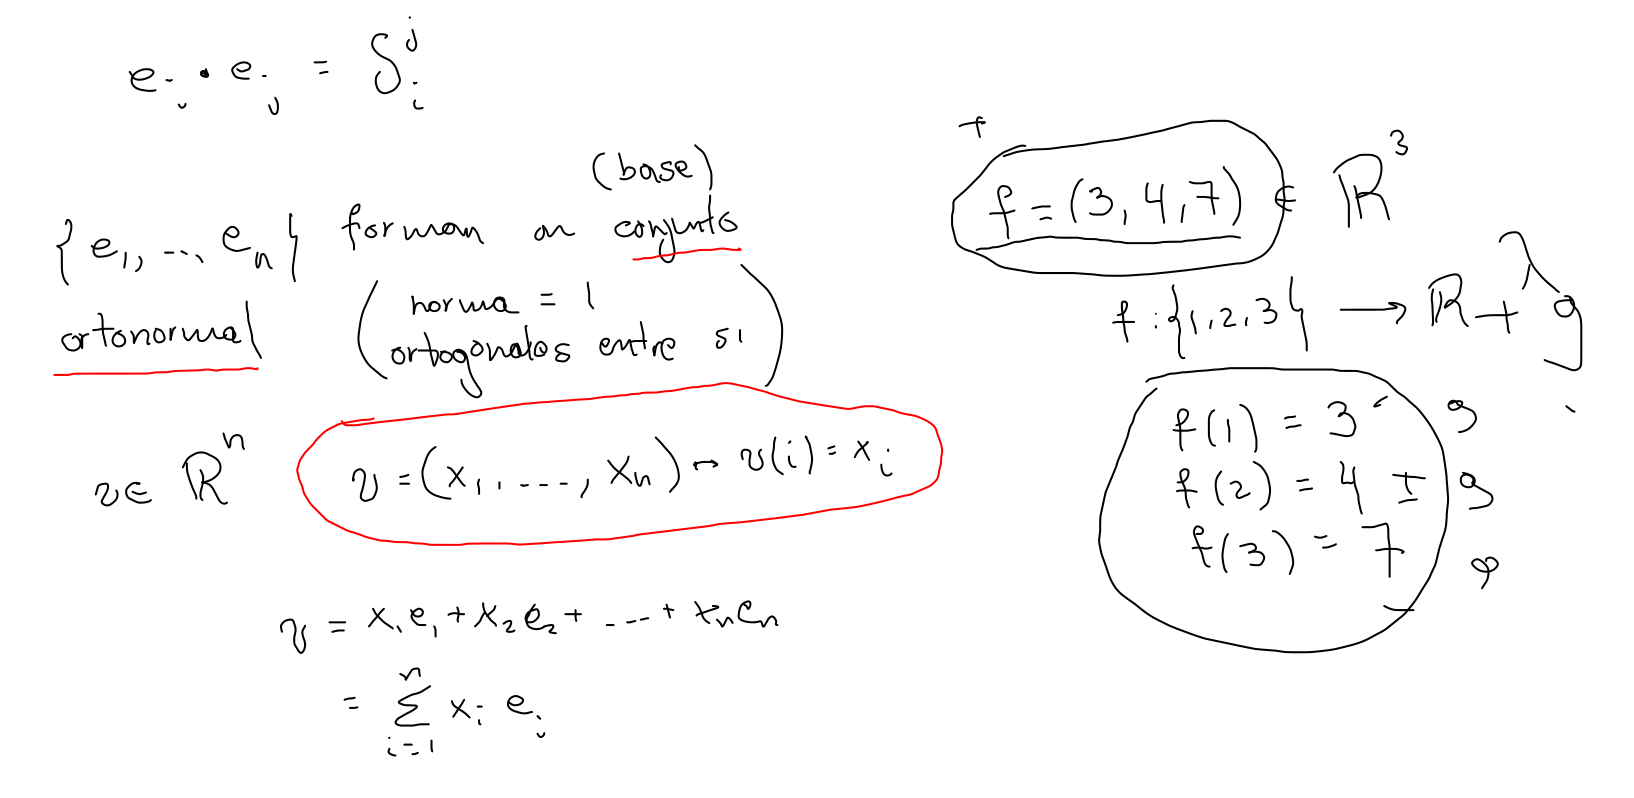 e_i · e_j = δ_i^j
(base)
{e_1, ..., e_n} forman un conjunto
ortonormal
(norma = 1
ortogonales entre si)
v ∈ ℝ^n
v = (x_1, ..., x_n) → v(i) = x_i
v = x_1 e_1 + x_2 e_2 + ... + x_n e_n
= Σ_{i=1}^n x_i e_i
+
f = (3, 4, 7) ∈ ℝ^3
f : {1, 2, 3} → ℝ + λg
f(1) = 3 g
f(2) = 4 ± g
f(3) = 7